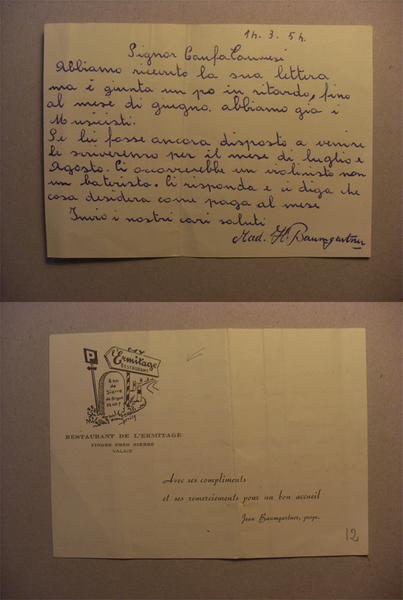 14. 3. 54.
Signor Canfalonieri
Abbiamo ricevuto la sua lettera
ma è giunta un po in ritardo, fino
al mese di giugno. abbiamo gia i
Musicisti.
Se lui fosse ancora disposto a venire
le scriveremo per il mese di luglio e
Agosto. Ci occorrerebbe un violinista non
un baterista. Ci risponda e ci diga che
cosa desidera come paga al mese
Invio i nostri cari saluti
Mad. H. Baumgartner
P
l'Ermitage
RESTAURANT
RESTAURANT DE L'ERMITAGE
FINGES PRÈS SIERRE
VALAIS
Avec ses compliments
et ses remerciements pour un bon accueil
Jean Baumgartner, propr.
12